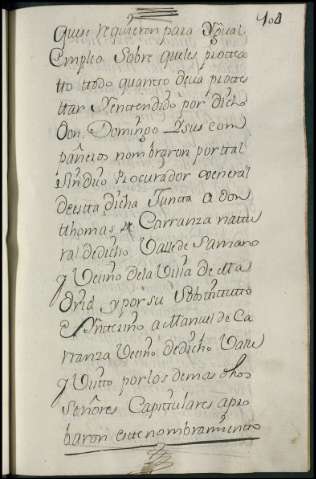 108
quien requieron para Ygual
Empleo sobre queles protes
tto ttodo quantto deva prottes
ttar Yentendido por dicho
Don Domingo Ysus com
pañeros nombraron por ttal
Sindico Procurador General
de esta dicha Juntta a don
tthomas de Carranza nattu
ral de dicho Valle de Samano
y Vecino dela Villa de Ma
drid y por su Sobstittutto
E Ynterino a Manuel de Ca
rranza Vecino de dicho Valle
y Vistto por los demas dhos
Señores Capittulares apro
baron este nombramientto